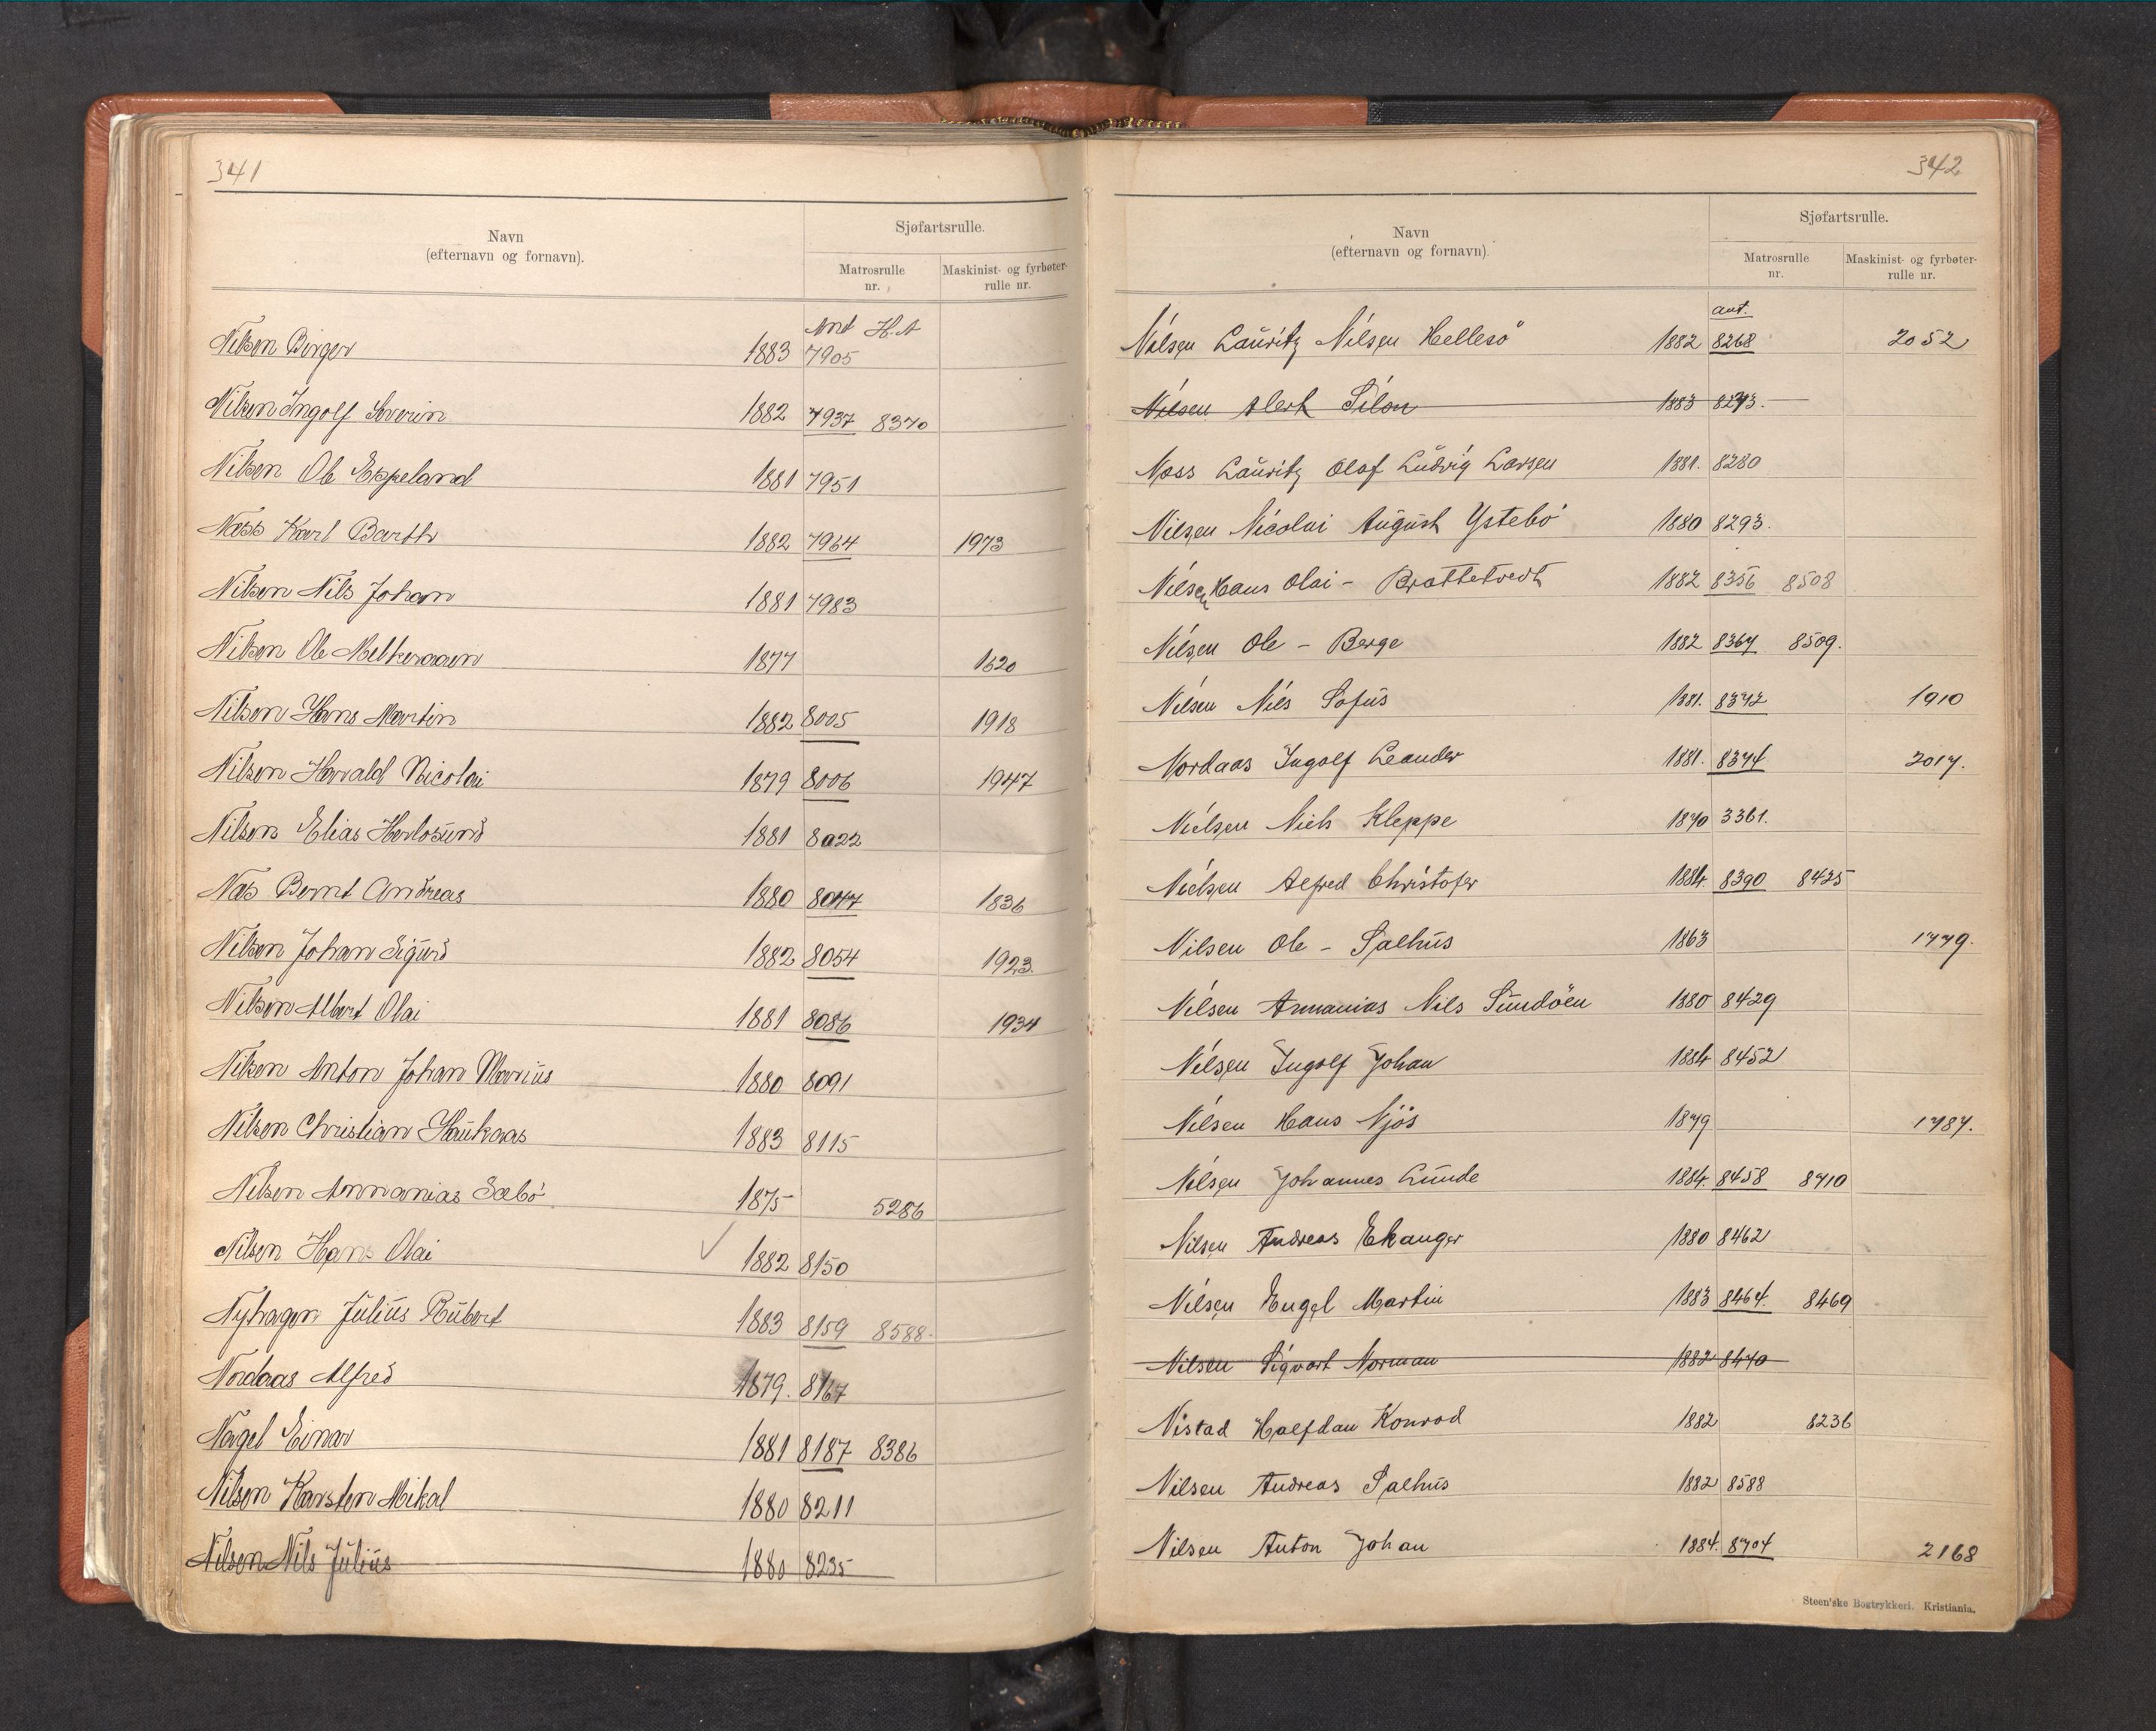 341
Navn
(efternavn og fornavn).
Sjøfartsrulle.
Matrosrulle
nr.
Maskinist- og fyrbøter-
rulle nr.
Ant H.A
Nilsen Birger 1883 7905
Nilsen Ingolf Severin 1882 7937 8370
Nilsen Ole Eppeland 1881 7951
Næss Karl Barth 1882 7964 1973
Nilsen Nils Johan 1881 7983
Nilsen Ole 1877 1620
Nilsen Hans Martin 1882 8005 1918
Nilsen Harald Nicolai 1879 8006 1947
Nilsen Elias Herlosund 1881 8022
Næs Bernt Andreas 1880 8047 1836
Nilsen Johan Sigurd 1882 8054 1923
Nilsen Albert Olai 1881 8086 1934
Nilsen Anton Johan Marius 1880 8091
Nilsen Christian Haukaas 1883 8115
Nilsen Annanias Sæbö 1875 5286
Nilsen Hans Olai 1882 8150
Nyhagen Julius Rubert 1883 8159 8588
Nordaas Alfred 1879. 8167
Nagel Einar 1881 8187 8386
Nilsen Karsten Mikal 1880 8211
Nilsen Nils Julius 1880 8235
342
Navn
(efternavn og fornavn).
Sjøfartsrulle.
Matrosrulle
nr.
Maskinist- og fyrbøter-
rulle nr.
ant.
Nilsen Lauritz Nilsen Hellesö 1882 8268 2052
Nilsen Alert Silon 1883 8273.
Næss Lauritz Olaf Ludvig Larsen 1881. 8280
Nilsen Nicolai August Ystebö 1880 8293.
Nilsen Hans Olai - Brattetvedt 1882 8356 8508
Nilsen Ole - Berge 1882 8367 8509.
Nilsen Nils Sofus 1881. 8372 1910
Nordaas Ingolf Leander 1881. 8374 2017.
Nielsen Niels Kleppe 1870 3361.
Nielsen Alfred Christofer 1884. 8390 8425
Nilsen Ole - Salhus 1863 1779.
Nilsen Annanias Nils Sundöen 1880 8429
Nilsen Ingolf Johan 1884 8452
Nilsen Hans Njös 1879 1787.
Nilsen Johannes Lunde 1884. 8458 8710
Nilsen Andreas Ekanger 1880 8462
Nilsen Engel Martin 1883 8464. 8469
Nilsen Sigvart Norman 1882 8470
Nistad Halfdan Konrad 1882 8236
Nilsen Andreas Salhus 1882 8588
Nilsen Anton Johan 1884. 8704 2168
Steen'ske Bogtrykkeri. Kristiania.